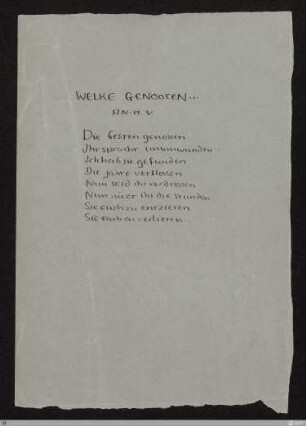 WELKE GENOOTEN...
AN. M. V
Die besten genossen
Ihr spracht unumwunden
Ich hab sie gefunden
Die jare verflossen
Nun seid ihr verdrossen
Nun nüzt ihr die stunden
Sie euch zu entzieren
Sie euch zu verlieren.